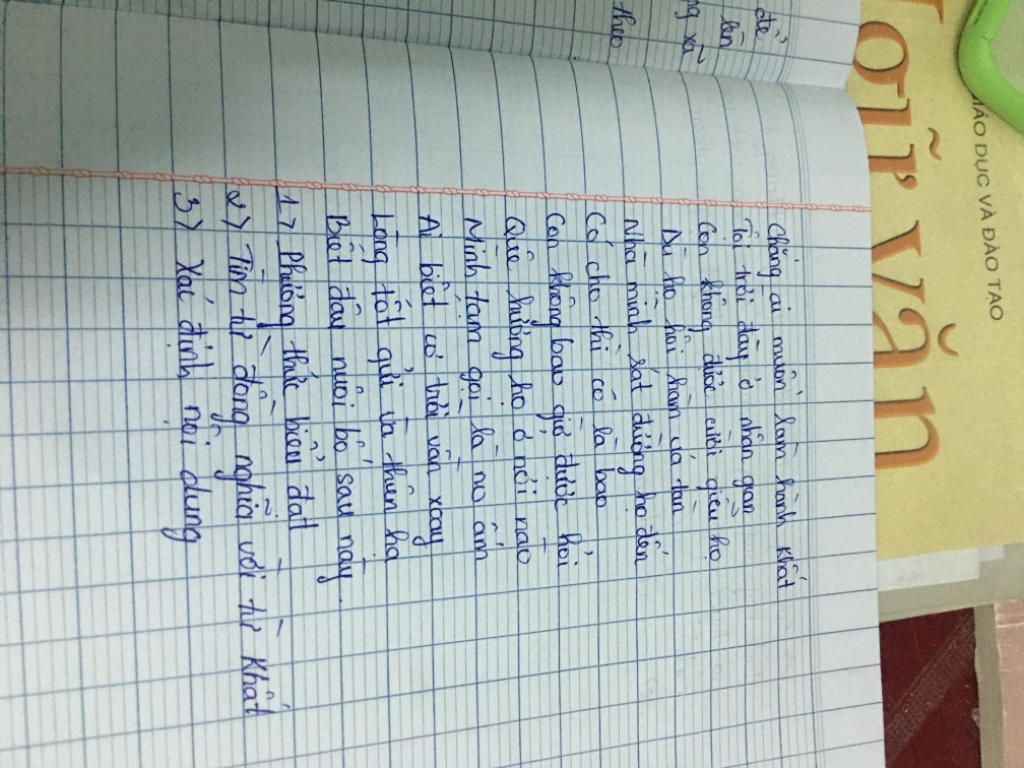 để
lên
ng xã
theo
GIÁO DỤC VÀ ĐÀO TẠO
Ngữ văn
Chẳng ai muốn làm hành khất
Tội trời đày ở nhân gian
Con không được cười giễu họ
Dù họ hôi hám úa tàn
Nhà mình sát đường họ đến
Có cho thì có là bao
Con không bao giờ được hỏi
Quê hương họ ở nơi nào
Mình tạm gọi là no ấm
Ai biết cơ trời vần xoay
Lòng tốt gửi vào thiên hạ
Biết đâu nuôi bố sau này.
1> Phương thức biểu đạt
2> Tìm từ đồng nghĩa với từ Khất
3> Xác định nội dung